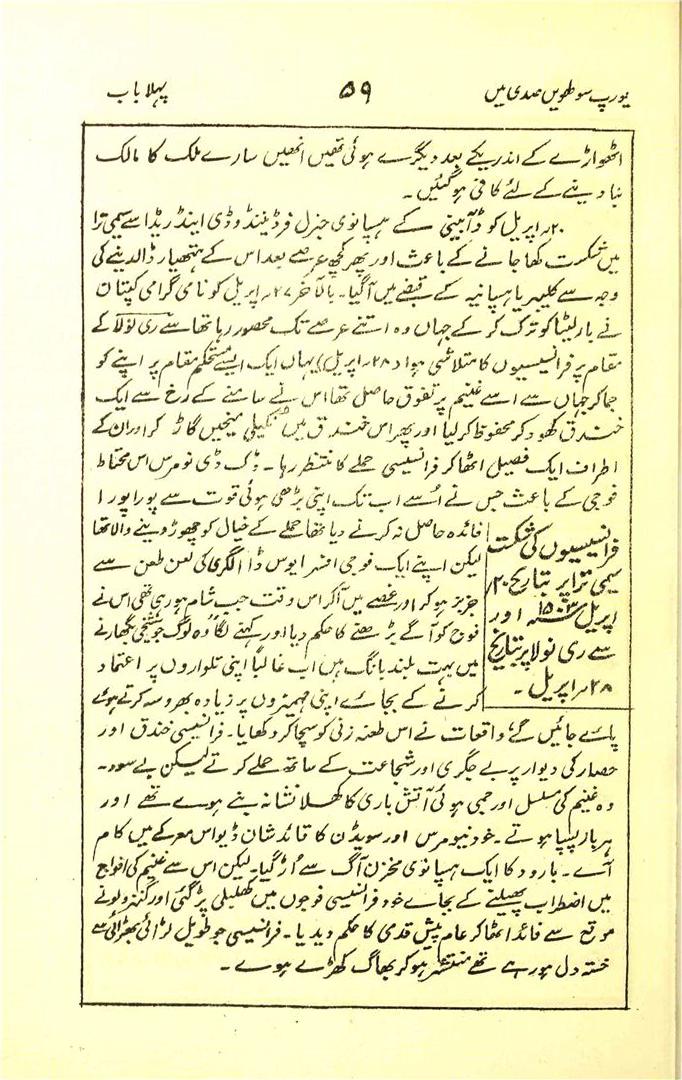 یورپ سولھویں صدی میں
۵۹
پہلا باب
اٹھواڑے کے اندر یکے بعد دیگرے ہوئی تھیں انھیں سارے ملک کا مالک
بنا دینے کے لئے کافی ہوگئیں۔
۲۰؍ اپریل کو ڈآبینی کے ہسپانوی جنرل فرڈیننڈو ڈی اینڈریڈا سے سیمی نرا
میں شکست کھا جانے کے باعث اور پھر کچھ عرصے بعد اس کے ہتھیار ڈالدینے کی
وجہ سے کلیبریا ہسپانیہ کے قبضے میں آگیا۔ بالآخر ۲۷؍ اپریل کو نامی گرامی کپتان
نے بارلیٹا کو ترک کر کے جہاں وہ اتنے عرصے تک محصور رہا تھا سے ری نولا کے
مقام پر فرانسیسیوں کا متلاشی ہوا (۲۸؍ اپریل) یہاں ایک ایسے مستحکم مقام پر اپنے کو
جما کر جہاں سے اسے غنیم پر تفوق حاصل تھا اس نے سامنے کے رخ سے ایک
خندق کھود کر محفوظ کر لیا اور پھر اس خندق میں نکیلی میخیں گاڑ کر اور ان کے
اطراف ایک فصیل اٹھا کر فرانسیسی حملے کا منتظر رہا۔ ڈک ڈی نومرس اس محتاط
فوجی کے باعث جس نے اُسے اب تک اپنی بڑھی ہوئی قوت سے پورا پورا
فرانسیسیوں کی شکست
سیمی نرا پر بتاریخ ۲۰؍
اپریل ۱۵۰۳ء اور
سے ری نولا پر بتاریخ
۲۸؍ اپریل۔
فائدہ حاصل نہ کرنے دیا تھا حملے کے خیال کو چھوڑ دینے والا تھا
لیکن اپنے ایک فوجی افسر ایوس ڈا الگری کی لعن طعن سے
جزبز ہو کر اور غصے میں آکر اس وقت جب شام ہو رہی تھی اس نے
فوج کو آگے بڑھنے کا حکم دیا اور کہنے لگا "وہ لوگ جو شیخی بگھارنے
میں بہت بلند بانگ ہیں اب غالباً اپنی تلواروں پر اعتماد
کرنے کے بجائے اپنی مہمیزوں پر زیادہ بھروسہ کرتے ہوئے
پائے جائیں گے" واقعات نے اس طعنہ زنی کو سچا کر دکھایا۔ فرانسیسی خندق اور
حصار کی دیوار پر بے جگری اور شجاعت کے ساتھ حملے کرتے لیکن بے سود۔
وہ غنیم کی مسلسل اور جمی ہوئی آتش باری کا کھلا نشانہ بنے ہوے تھے اور
ہر بار پسپا ہوتے۔ خود نیومرس اور سویڈن کا قائد شان ڈیو اس معرکے میں کام
آے۔ بارود کا ایک ہسپانوی مخزن آگ سے اڑ گیا۔ لیکن اس سے غنیم کی افواج
میں اضطراب پھیلنے کے بجاے خود فرانسیسی فوجوں میں کھلبلی پڑگئی اور گنزولونے
موقع سے فائدہ اٹھا کر عام پیش قدمی کا حکم دیدیا۔ فرانسیسی جو طویل لڑائی بھڑائی سے
خستہ دل ہو رہے تھے منتشر ہو کر بھاگ کھڑے ہوے۔